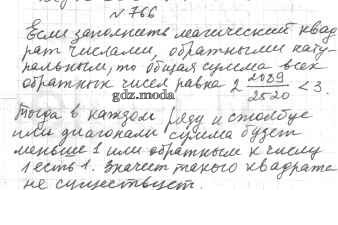 № 766
Если заполнить магический квад
рат числами, обратными нату-
ральным, то общая сумма всех
обратных чисел равна 2 2089/2520 < 3.
gdz.moda
Тогда в каждом ряду и столбце
или диагонали сумма будет
меньше 1 или обратным к числу
1 есть 1. Значит такого квадрата
не существует.